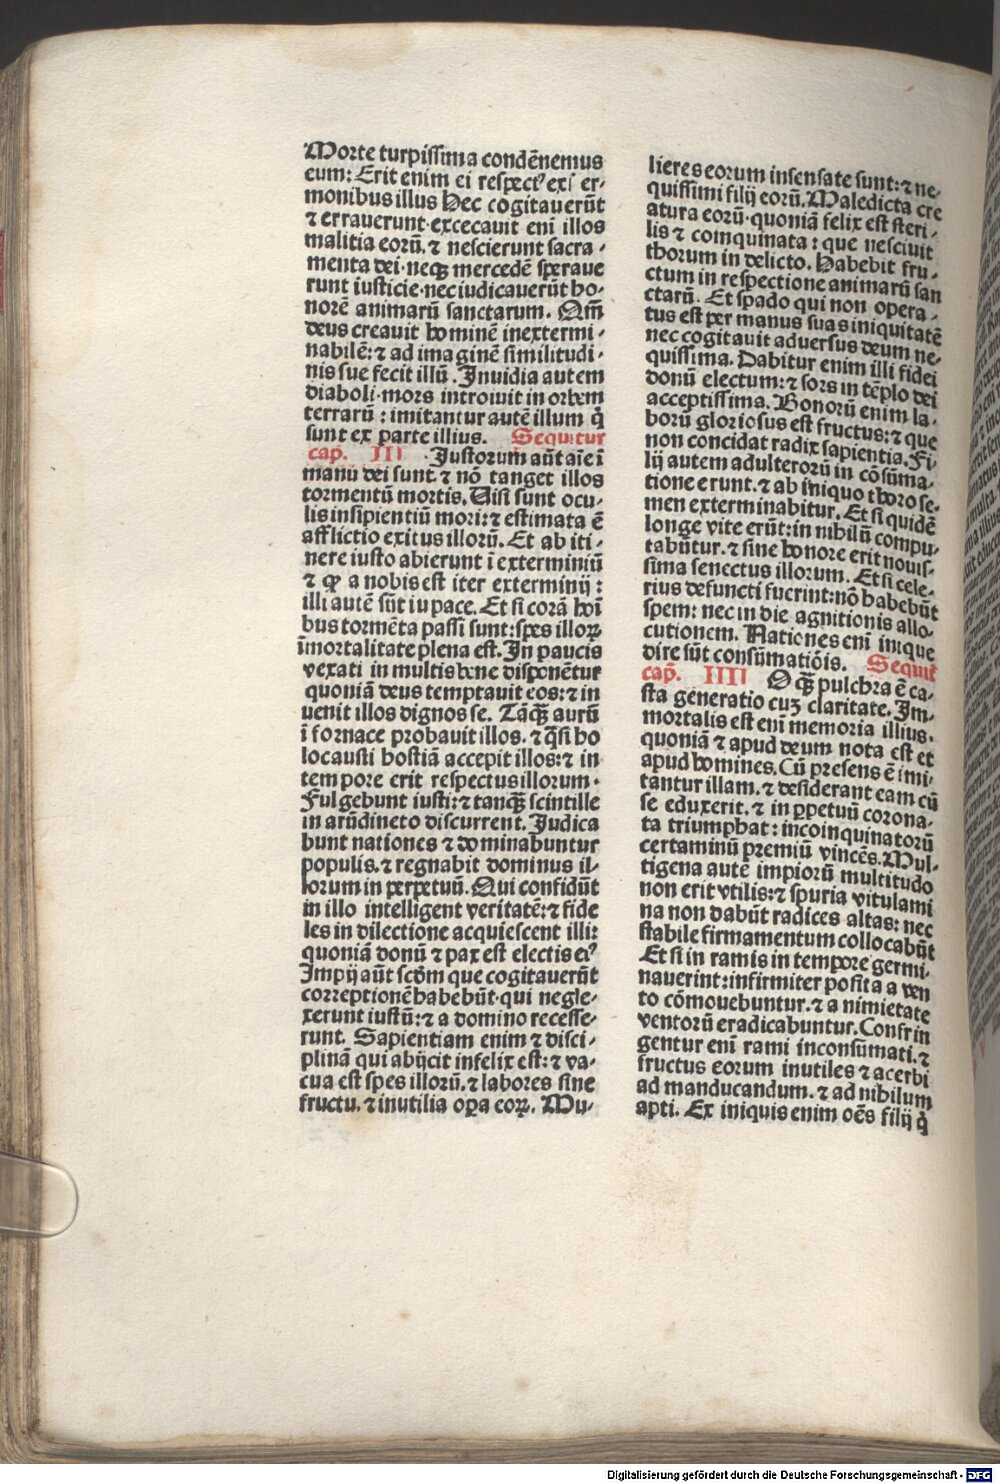 Morte turpissima condēnemus
eum: Erit enim ei respectꝰ exi er-
monibus illus Hec cogitauerūt
⁊ errauerunt·excecauit eni illos
malitia eorū. ⁊ nescierunt sacra-
menta dei·neqꝫ mercedē speraue
runt iusticie·nec iudicauerūt ho-
norē animarū sanctarum. Qm̄
deus creauit hominē inextermi-
nabilē: ⁊ ad imaginē similitudi-
nis sue fecit illū. Inuidia autem
diaboli·mors introiuit in orbem
terrarū: imitantur autē illum q̇
sunt ex parte illius. Sequitur
cap. III Iustorum aūt aīe ī
manu dei sunt. ⁊ nō tanget illos
tormentū mortis. Visi sunt ocu-
lis insipientiū mori: ⁊ estimata ē
afflictio exitus illorū. Et ab iti-
nere iusto abierunt ī exterminiū
⁊ qꝫ a nobis est iter exterminij:
illi autē sūt iu pace. Et si corā hoī
bus tormēta passi sunt: spes illoꝝ
īmortalitate plena est. In paucis
vexati in multis bene disponētur
quoniā deus temptauit eos: ⁊ in
uenit illos dignos se. Tāqꝫ aurū
ī fornace probauit illos. ⁊ q̄si ho
locausti hostiā accepit illos: ⁊ in
tempore erit respectus illorum.
Fulgebunt iusti: ⁊ tanqꝫ scintille
in arūdineto discurrent. Iudica
bunt nationes ⁊ dominabuntur
populis. ⁊ regnabit dominus il-
lorum in perpetuū. Qui confidūt
in illo intelligent veritatē: ⁊ fide
les in dilectione acquiescent illi:
quoniā donū ⁊ pax est electis eiꝰ
Impij aūt scd̄m que cogitauerūt
correptionē habebūt·qui negle-
xerunt iustū: ⁊ a domino recesse-
runt. Sapientiam enim ⁊ disci-
plinā qui abijcit infelix est: ⁊ va-
cua est spes illorū. ⁊ labores sine
fructu. ⁊ inutilia oꝑa eoꝝ. Mu-
lieres eorum insensate sunt: ⁊ ne-
quissimi filij eorū. Maledicta cre
atura eorū·quoniā felix est steri-
lis ⁊ coinquinata: que nesciuit
thorum in delicto. Habebit fru-
ctum in respectione animarū san
ctarū. Et spado qui non opera-
tus est per manus suas iniquitatē
nec cogitauit aduersus deum ne-
quissima. Dabitur enim illi fidei
donū electum: ⁊ sors in tēplo dei
acceptissima. Bonorū enim la-
borū gloriosus est fructus: ⁊ que
non concidat radix sapientia. Fi
lij autem adulterorū in cōsūma-
tione erunt. ⁊ ab iniquo thoro se-
men exterminabitur. Et si quidē
longe vite erūt: in nihilū compu-
tabūtur. ⁊ sine honore erit nouis-
sima senectus illorum. Et si cele-
rius defuncti fuerint: nō habebūt
spem: nec in die agnitionis allo-
cutionem. Nationes eni inique
dire sūt consūmatiōis. Sequit̄
cap̄. IIII O qꝫ pulchra ē ca-
sta generatio cuꝫ claritate. Im-
mortalis est eni memoria illius.
quoniā ⁊ apud deum nota est et
apud homines. Cū presens ē imi-
tantur illam. ⁊ desiderant eam cū
se eduxerit. ⁊ in ꝑpetuū corona-
ta triumphat: incoinquinatorū
certaminū premiū vincēs. Mul-
tigena autē impiorū multitudo
non erit vtilis: ⁊ spuria vitulami
na non dabūt radices altas: nec
stabile firmamentum collocabūt
Et si in ramis in tempore germi-
nauerint: infirmiter posita a ven
to cōmouebuntur. ⁊ a nimietate
ventorū eradicabuntur. Confrin
gentur eni rami inconsūmati. ⁊
fructus eorum inutiles ⁊ acerbi
ad manducandum. ⁊ ad nihilum
apti. Ex iniquis enim oēs filij q̇
Digitalisierung gefördert durch die Deutsche Forschungsgemeinschaft - DFG